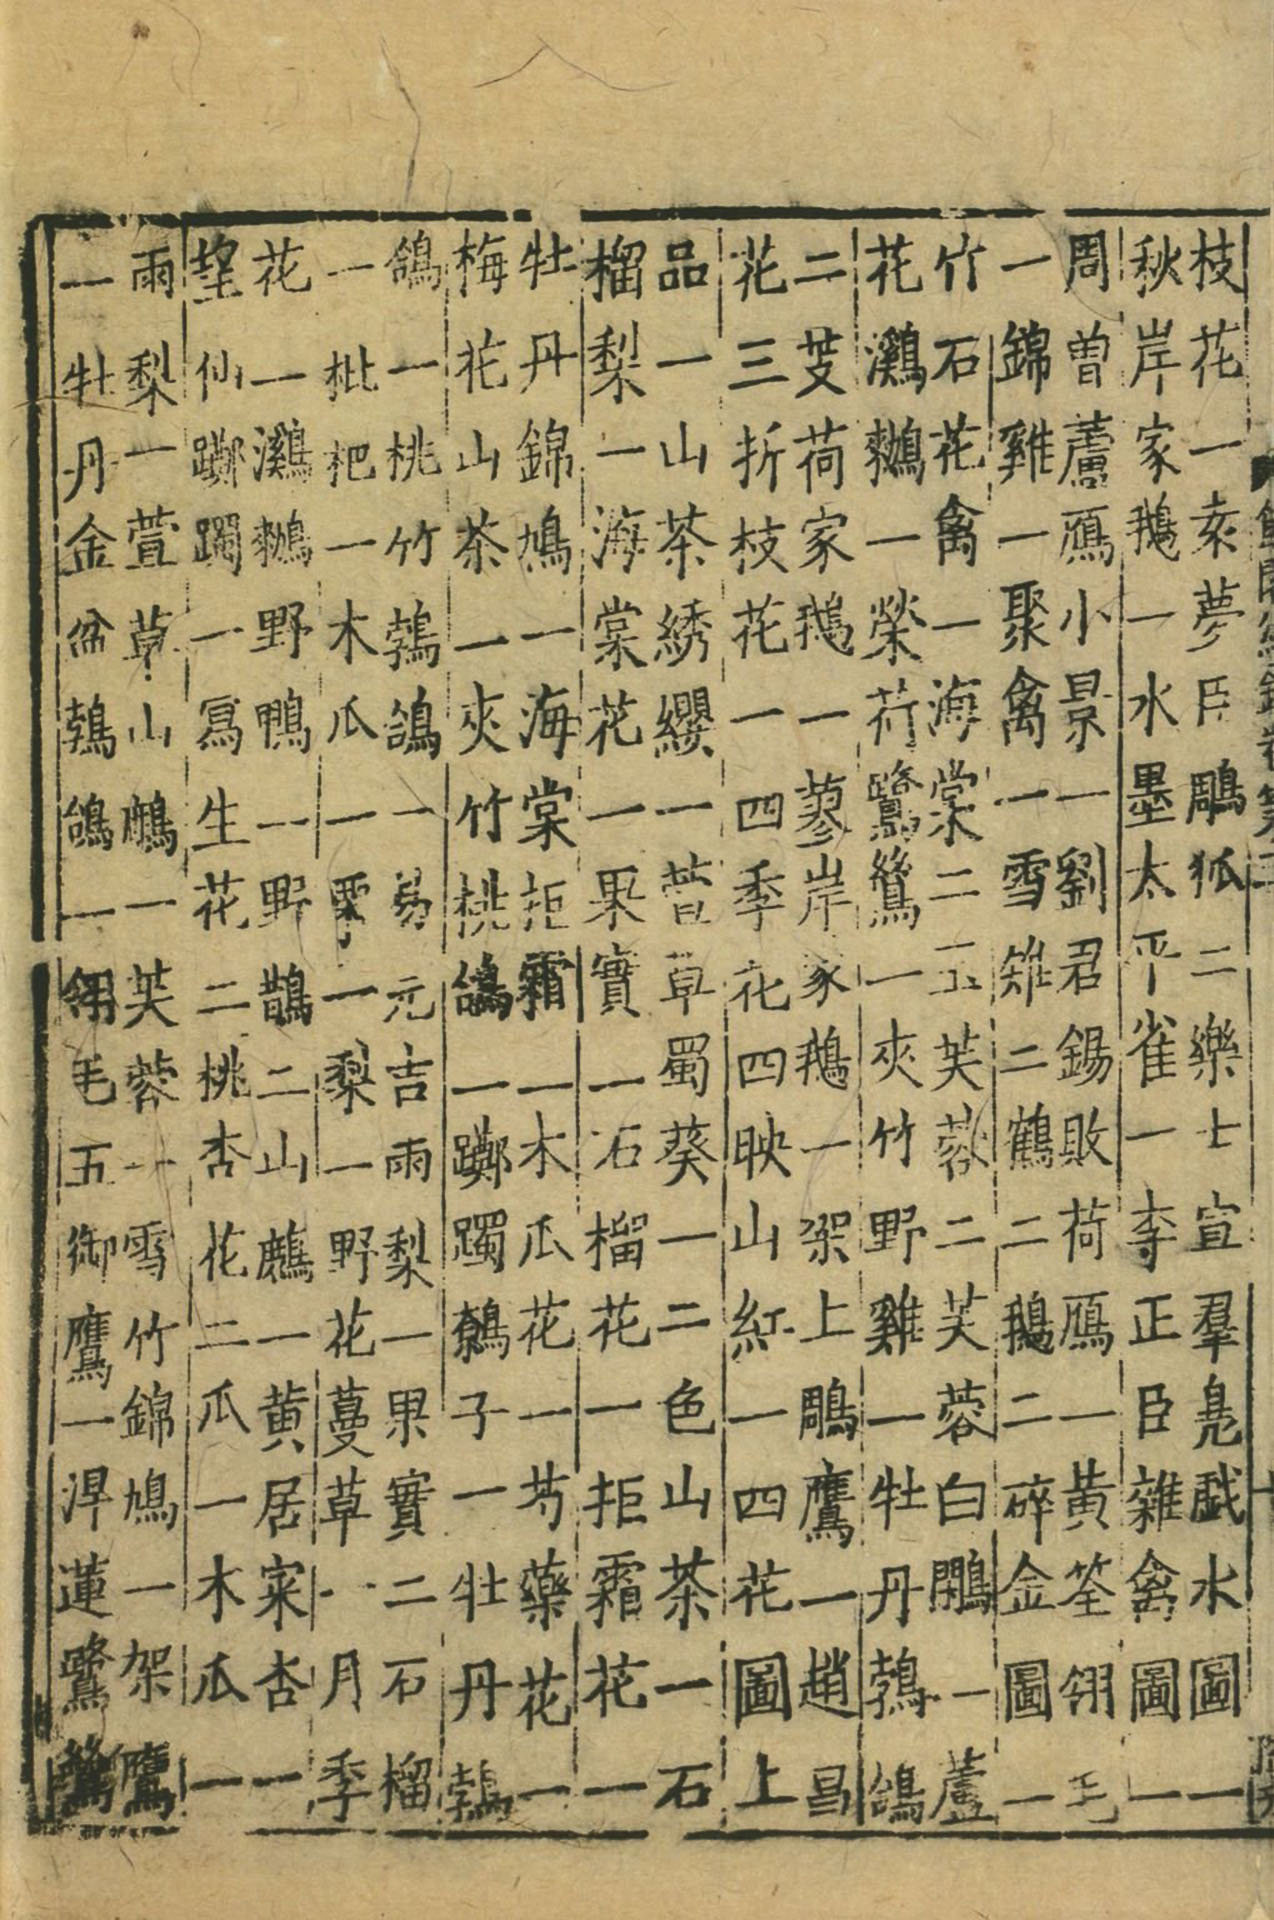 枝花一袁夢臣雕狐二樂士宣羣鳬戯水圖一
秋岸家鵝一水墨太平雀一李正臣雜禽圖一
周曽蘆鴈小景一劉君錫敗荷鴈一黄筌翎毛
一錦雞一聚禽一雪雉二鶴二鵝二碎金圖一
竹石花禽一海棠二玉芙蓉二芙蓉白鷴一蘆
花鸂鶒一榮荷鷺鷥一夾竹野雞一牡丹鵓鴿
二芰荷家鵝一蓼岸家鵝一架上鵰鷹一趙昌
花三折枝花一四季花四映山紅一四花圖上
品一山茶綉纓一萱草蜀葵一二色山茶一石
榴梨一海棠花一果實一石榴花一拒霜花一
牡丹錦鳩一海棠拒霜一木瓜花一芍藥花一
梅花山茶一夾竹桃鴿一躑躅鶉子一牡丹鵓
鴿一桃竹鵓鴿一易元吉雨梨一果實二石榴
一枇杷一木瓜一栗一梨一野花蔓草一月季
花一鸂鶒野鴨一野鵲二山鷓一黄居寀杏一
望仙躑躅一寫生花二桃杏花二瓜一木瓜一
雨梨一萱草山鷓一芙蓉一雪竹錦鳩一架鷹
一牡丹金盆鵓鴿一翎毛五御鷹一渾蓮鷺鷥